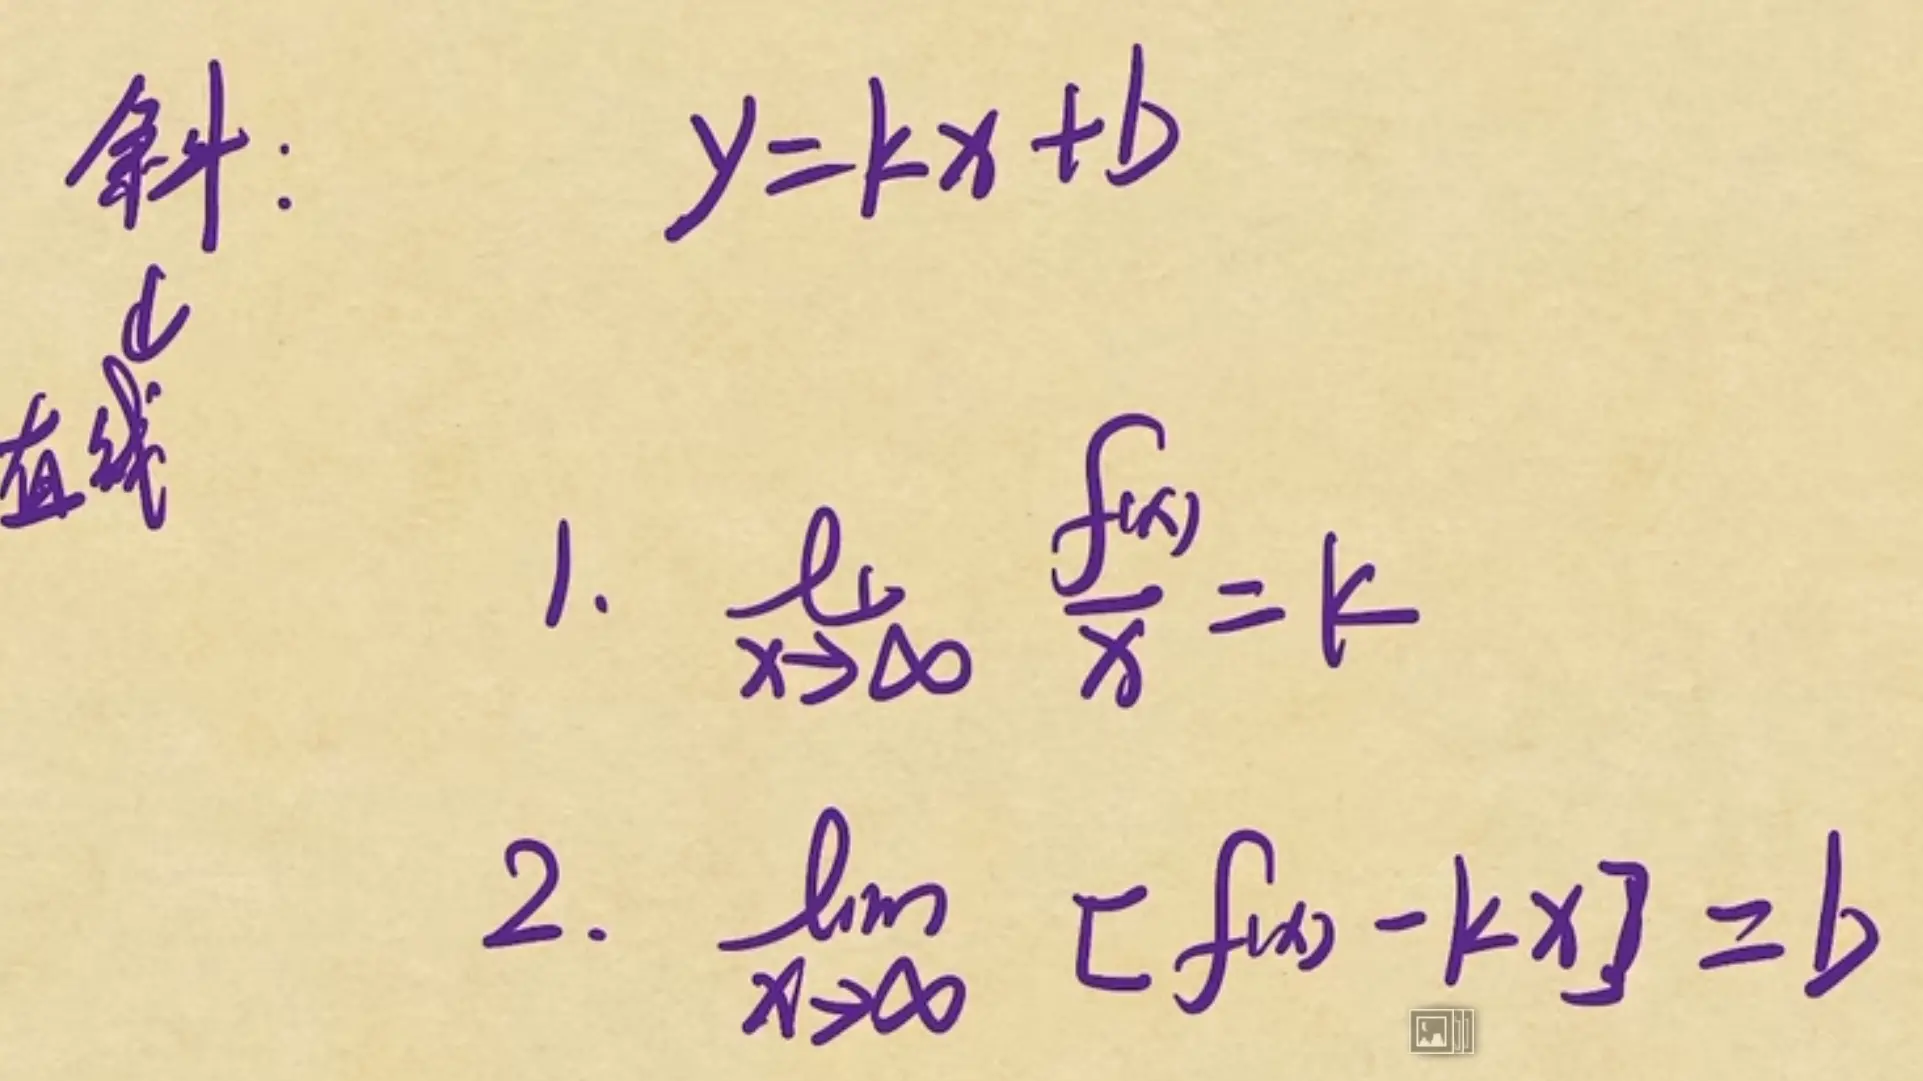 斜: y=kx+b
↓
直线
1. lim x→∞ f(x)/x = k
2. lim x→∞ [f(x)-kx] = b